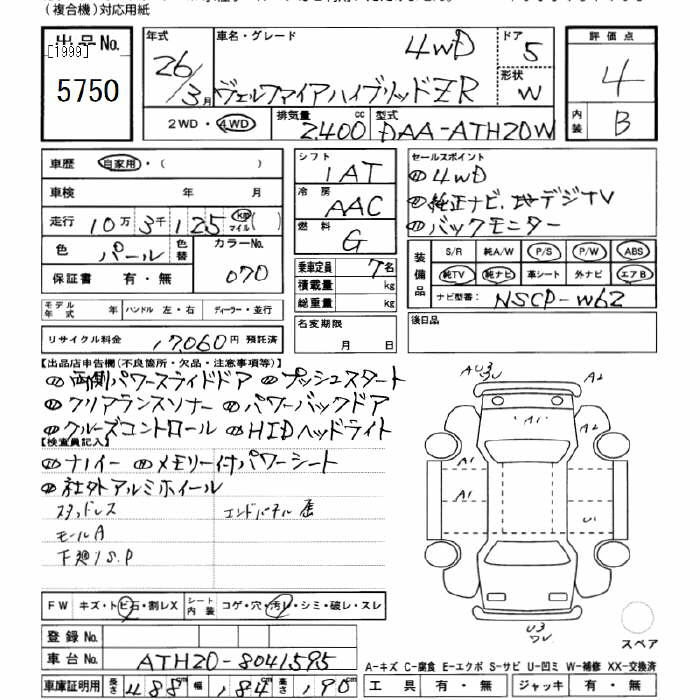 (複合機)対応用紙
出品No.
[1999]
5750
年式 26/3月
車名・グレード 4WD
ヴェルファイアハイブリッドZR
ドア 5
形状 W
2WD・4WD
排気量 2400 cc
型式 DAA-ATH20W
評価点
4
内装 B
車歴 自家用・( )
車検 年 月
走行 10万3千125 km マイル( )
色 パール 色替 カラーNo. 070
保証書 有・無
モデル年式 年 ハンドル 左・右 ディーラー・並行
リサイクル料金 17,060円 預託済
シフト IAT
冷房 AAC
燃料 G
乗車定員 7名
積載量 kg
総重量 kg
名変期限
月 日
セールスポイント
①4WD
②純正ナビ、地デジTV
③バックモニター
装備品
S/R 純A/W P/S P/W ABS
純TV 純ナビ 革シート 外ナビ エアB
ナビ型番: NSCP-W62
後日品
【出品店申告欄(不良箇所・欠品・注意事項等)】
両側パワースライドドア プッシュスタート
クリアランスソナー パワーバックドア
クルーズコントロール HIDヘッドライト
【検査員記入】
ナノイー メモリー付パワーシート
社外アルミホイール
スタッドレス エンドパネル歪
モールA
下廻りS.P
FW キズ・トビ石・割レX シート内装 コゲ・穴・汚レ・シミ・破レ・スレ
登録No.
車台No. ATH20-8041595
車庫証明用 長さ 488cm 幅 184cm 高さ 190cm
AU3
W
A2
A1
A1
A1
A2
U1
U3
W
スペア
A-キズ C-腐食 E-エクボ S-サビ U-凹ミ W-補修 XX-交換済
工具 有・無 ジャッキ 有・無